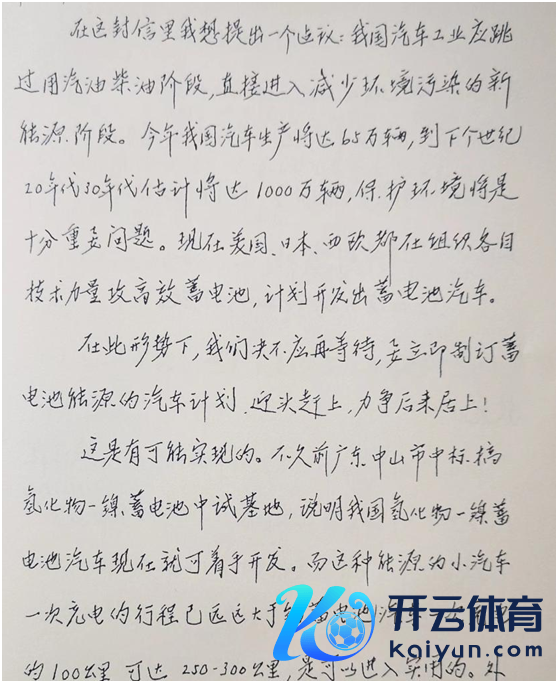 在这封信里我想提出一个建议：我国汽车工业应跳
过用汽油柴油阶段，直接进入减少环境污染的新
能源阶段。今年我国汽车生产将达65万辆，到下个世纪
20年代30年代估计将达1000万辆，保护环境将是
十分重要问题。现在美国、日本、西欧都在组织各自
技术力量攻高效蓄电池，计划开发出蓄电池汽车。
在此形势下，我们决不应再等待，要立即制订蓄
电池能源的汽车计划，迎头赶上，力争后来居上！
这是有可能实现的。不久前广东中山市中标搞
氢化物—镍蓄电池中试基地，说明我国氢化物—镍蓄
电池汽车现在就可着手开发。而这种能源的小汽车
一次充电的行程已远远大于 蓄电池汽车一次
的100公里 可达250-300公里，是可以进入实用的。外
开云体育
kaiyun.com